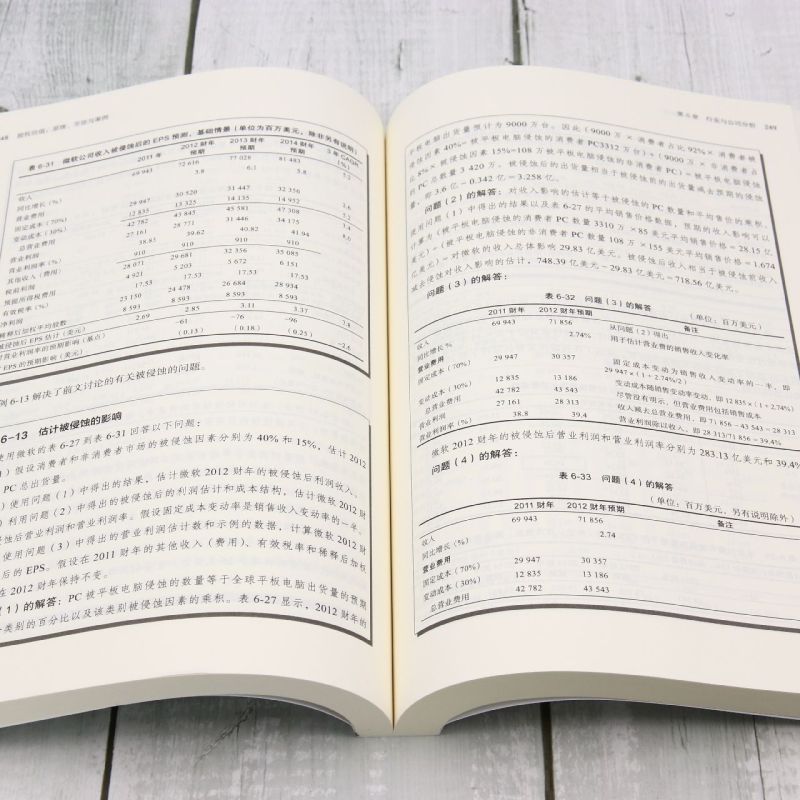 248 股权估值：原理、方法与案例
表6-31 微软公司收入被侵蚀后的EPS预测：基础情景（单位为百万美元，除非另有说明）
2011年 2012财年预期 2013财年预期 2014财年预期 3年CAGR（%）
收入 69 943 72 616 77 028 81 483 5.2
同比增长（%） 3.8 6.1 5.8
营业费用
固定成本（70%） 29 947 30 520 31 447 32 356 2.6
变动成本（30%） 12 835 13 325 14 135 14 952 5.2
总营业费用 42 782 43 845 45 581 47 308 3.4
营业利润 27 161 28 771 31 446 34 175 8.0
营业利润率（%） 38.83 39.62 40.82 41.94
其他收入（费用） 910 910 910 910
税前利润 28 071 29 681 32 356 35 085
预留所得税费用 4 921 5 203 5 672 6 151
有效税率（%） 17.53 17.53 17.53 17.53
净利润 23 150 24 478 26 684 28 934
稀释后加权平均股数 8 593 8 593 8 593 8 593
被侵蚀后EPS估计（美元） 2.69 2.85 3.11 3.37
对营业利润率的预期影响（基点） −61 −76 −96
EPS的预期影响（美元） （0.13） （0.18） （0.25） −2.6
例6-13解决了前文讨论的有关被侵蚀的问题。
6-13 估计被侵蚀的影响
使用微软的表6-27到表6-31回答以下问题：
）假设消费者和非消费者市场的被侵蚀因素分别为40%和15%，估计2012
PC总出货量。
使用问题（1）中得出的结果，估计微软2012财年的被侵蚀后利润收入。
利用问题（2）中得出的被侵蚀后的利润估计和成本结构，估计微软2012财
侵蚀后营业利润和营业利润率。假设固定成本变动率是销售收入变动率的一半。
使用问题（3）中得出的营业利润估计数和示例的数据，计算微软2012财
后的EPS。假设在2011财年的其他收入（费用）、有效税率和稀释后加权
在2012财年保持不变。
（1）的解答：PC被平板电脑侵蚀的数量等于全球平板电脑出货量的预期
类别的百分比以及该类别被侵蚀因素的乘积。表6-27显示，2012财年的
第6章 行业与公司分析 249
平板电脑出货量预计为9000万台。因此（9000万×消费者占比92%×消费者被
侵蚀因素40%=被平板电脑侵蚀的消费者PC3312万台）+（9000万×非消费者占
比8%×被侵蚀因素15%=108万被平板电脑侵蚀的非消费者PC）=被平板电脑侵蚀
的PC总数量3 420万。被侵蚀后的出货量相当于被侵蚀前的出货量减去预期的侵蚀
量，即3.6亿−0.342亿=3.258亿。
问题（2）的解答：对收入影响的估计等于被侵蚀的PC数量和平均售价的乘积。
使用问题（1）中得出的结果以及表6-27的平均销售价格数据，预期的收入影响可以
计算为（被平板电脑侵蚀的消费者PC数量3310万×85美元平均销售价格=28.15亿
美元）+（被平板电脑侵蚀的非消费者PC数量108万×155美元平均销售价格=1.674
亿美元）=对微软的收入总体影响29.83亿美元。被侵蚀后收入相当于被侵蚀前收入
减去侵蚀对收入影响的估计，748.39亿美元−29.83亿美元=718.56亿美元。
问题（3）的解答：
表6-32 问题（3）的解答
（单位：百万美元）
2011财年 2012财年预期 备注
收入 69 943 71 856 从问题（2）得出
同比增长% 2.74% 用于估计营业费的销售收入变化率
营业费用
固定成本（70%） 29 947 30 357 固定成本变动为销售收入变动率的一半，即
29 947×（1+2.74%/2）
变动成本（30%） 12 835 13 186 变动成本随销售收入变动率变动，即12 835×（1+2.74%）
总营业费用 42 782 43 543 尽管没有明示，但营业费用包括销售成本
营业利润 27 161 28 313 收入减去总营业费用，即71 856−43 543=28 313
营业利润率（%） 38.8 39.4 营业利润除以收入，即28 313/71 856=39.4%
微软2012财年的被侵蚀后营业利润和营业利润率分别为283.13亿美元和39.4%
问题（4）的解答：
表6-33 问题（4）的解答
（单位：百万美元，另有说明除外）
2011财年 2012财年预期 备注
收入 69 943 71 856
同比增长（%） 2.74
营业费用
固定成本（70%） 29 947 30 357
变动成本（30%） 12 835 13 186
总营业费用 42 782 43 543